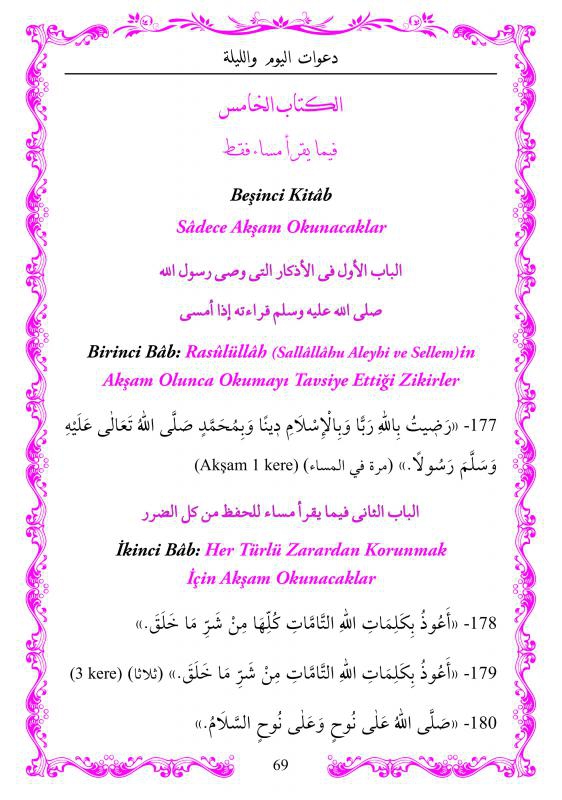 دعوات اليوم والليلة
الكتاب الخامس
فيما يقرأ مساء فقط
Beşinci Kitâb
Sâdece Akşam Okunacaklar
الباب الأول فى الأذكار التى وصى رسول الله
صلى الله عليه وسلم قراءته إذا أمسى
Birinci Bâb: Rasûlüllâh (Sallâllâhu Aleyhi ve Sellem)in
Akşam Olunca Okumayı Tavsiye Ettiği Zikirler
177- «رَضِيتُ بِاللهِ رَبًّا وَبِالْإِسْلَامِ دِينًا وَبِمُحَمَّدٍ صَلَّى اللهُ تَعَالٰى عَلَيْهِ
وَسَلَّمَ رَسُولًا.» (مرة في المساء) (Akşam 1 kere)
الباب الثانى فيما يقرأ مساء للحفظ من كل الضرر
İkinci Bâb: Her Türlü Zarardan Korunmak
İçin Akşam Okunacaklar
178- «أَعُوذُ بِكَلِمَاتِ اللهِ التَّامَّاتِ كُلِّهَا مِنْ شَرِّ مَا خَلَقَ.»
179- «أَعُوذُ بِكَلِمَاتِ اللهِ التَّامَّاتِ مِنْ شَرِّ مَا خَلَقَ.» (ثلاثا) (3 kere)
180- «صَلَّى اللهُ عَلٰى نُوحٍ وَعَلٰى نُوحٍ السَّلَامُ.»
69